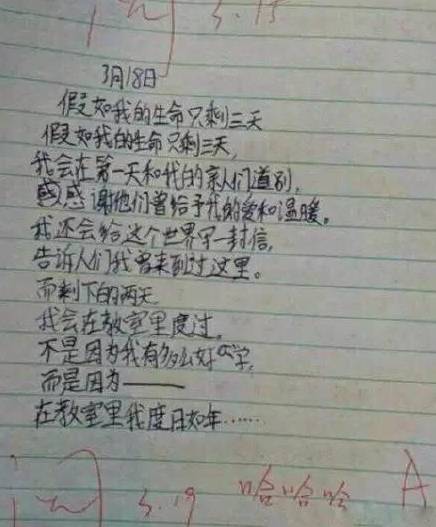 3.15
3月18日
假如我的生命只剩三天
假如我的生命只剩三天,
我会在第一天和我的亲人们道别,
感谢他们曾给予我的爱和温暖。
我还会给这个世界写一封信,
告诉人们我曾来到过这里。
而剩下的两天
我会在教室里度过,
不是因为我有多么好学,
而是因为——
在教室里我度日如年……
3.19 哈哈哈 A